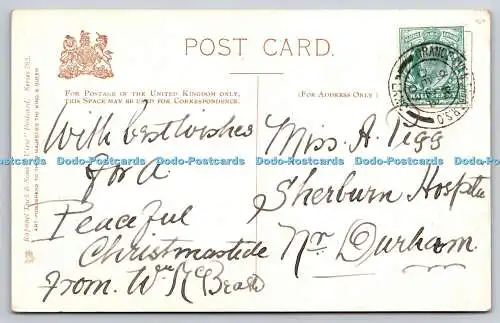 POST CARD.
FOR POSTAGE IN THE UNITED KINGDOM ONLY,
THIS SPACE MAY BE USED FOR CORRESPONDENCE.
(FOR ADDRESS ONLY.)
Raphael Tuck & Sons' "View" Postcard, Series 783.
ART PUBLISHERS TO THEIR MAJESTIES THE KING & QUEEN
With best wishes
for a
Peaceful
Christmastide
from. Wm
Miss A.
Sherburn Hospital
Nr Durham.
Dodo-Postcards Dodo-Postcards Dodo-Postcards Dodo-Postcards Dodo-Postcards Dodo-Postcards